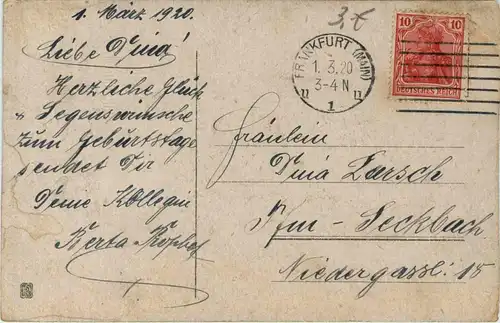 1. März 1920.
3,€
Liebe Dina!
Herzliche Glück
u Segenswünsche
zum Geburtstage
sendet Dir
Deine Kollegin
Berta
FRANKFURT (MAIN)
1. 3. 20
3-4 N
1
10 10
DEUTSCHES REICH
Fräulein
Dina
Ffm - Seckbach
Niedergassl: 15